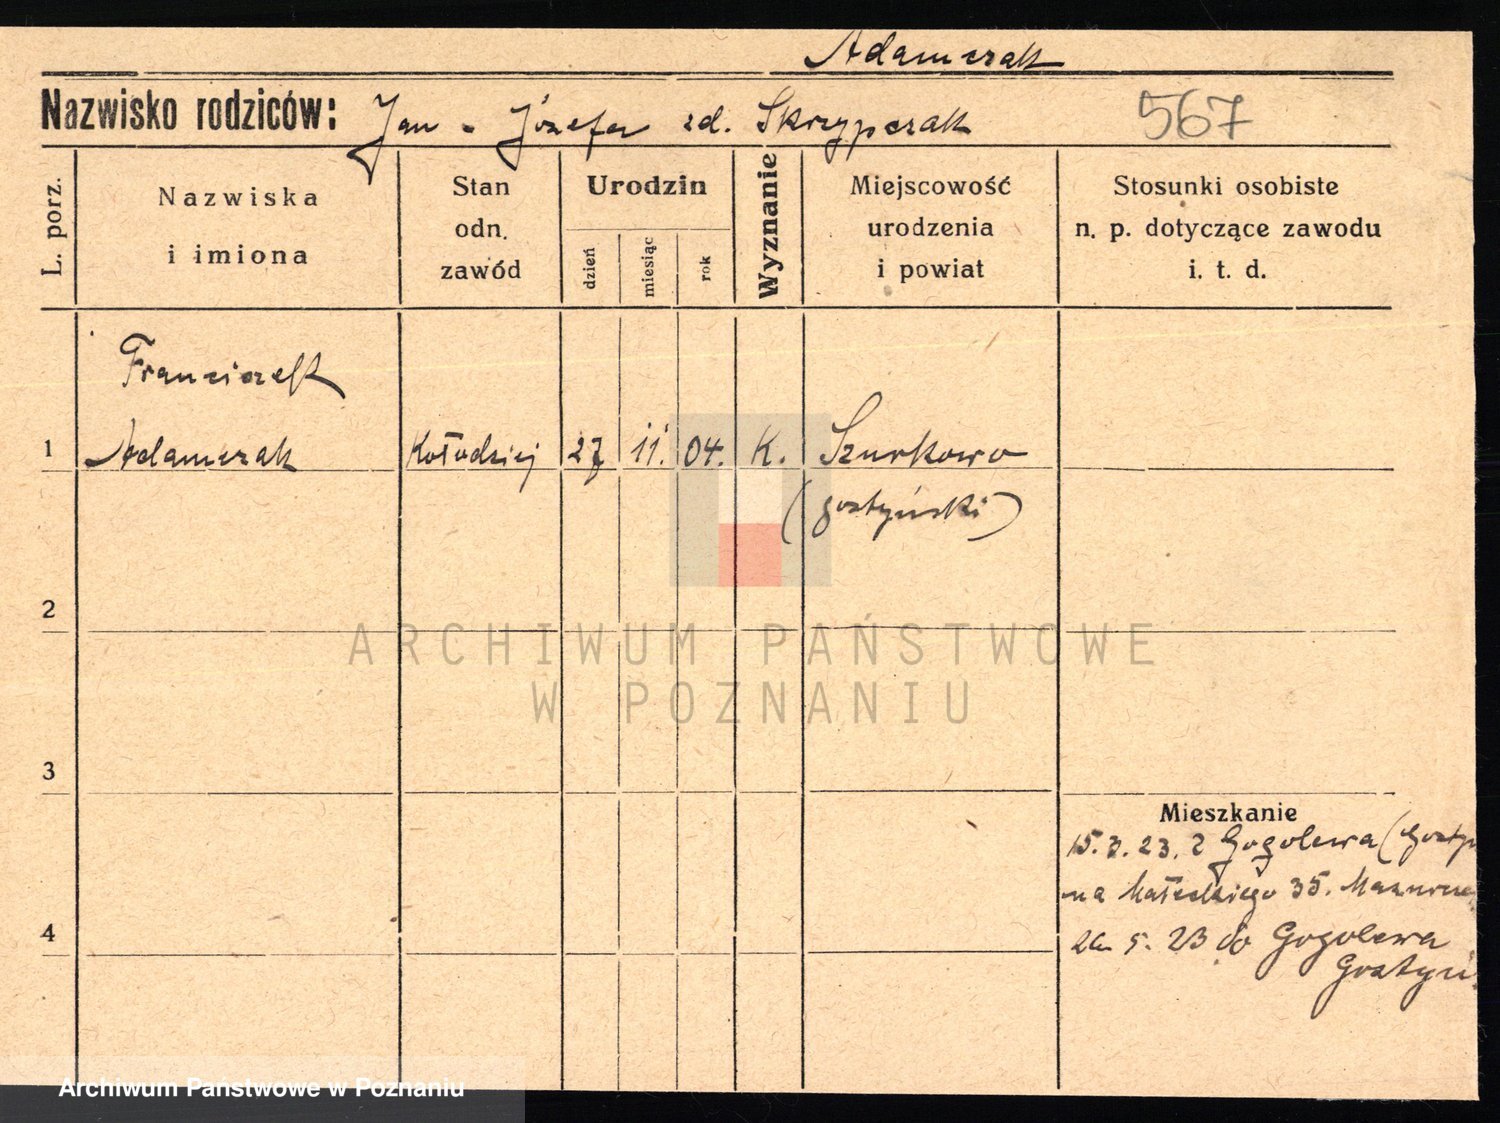 Adamczak
Nazwisko rodziców: Jan - Józefa zd. Skrzypczak 567
L. porz.
Nazwiska
i imiona
Stan
odn.
zawód
Urodzin
dzień
miesiąc
rok
Wyznanie
Miejscowość
urodzenia
i powiat
Stosunki osobiste
n. p. dotyczące zawodu
i. t. d.
Franciszek
1 Adamczak Kołodziej 27 11. 04. K. Szurkowo
(gostyński)
2
3
4
Mieszkanie
15. 3. 23. z Gogolewa (Gostyn
na Małeckiego 35.
5. 23 do Gogolewa
Gostyń
ARCHIWUM PAŃSTWOWE
W POZNANIU
Archiwum Państwowe w Poznaniu